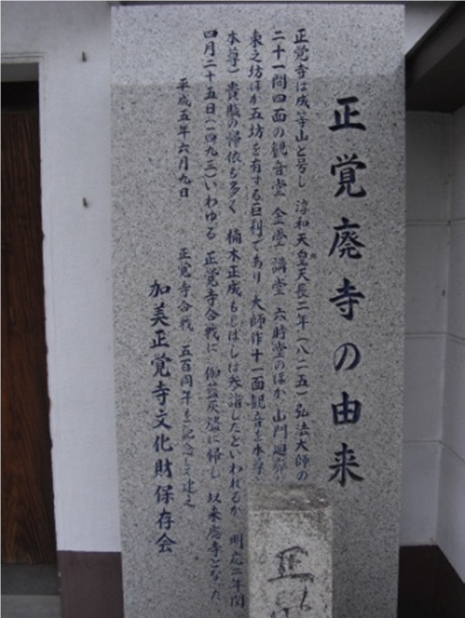 正覚廃寺の由来
正覚寺は成等山と号し 淳和天皇天長二年(八二五)弘法大師の
二十一間四面の観音堂 金堂 講堂 六時堂のほか 山門
東之坊ほか五坊を有する巨刹であり 大師作十一面観音を本尊
本尊) 貴賤の帰依も多く 楠木正成もしばしば参詣したといわれるが 明応二年閏
四月二十五日(一四九三)いわゆる 正覚寺合戦に 伽藍灰燼に帰し 以来廃寺となった
平成五年六月九日 正覚寺合戦 五百周年を記念して建之
加美正覚寺文化財保存会
正